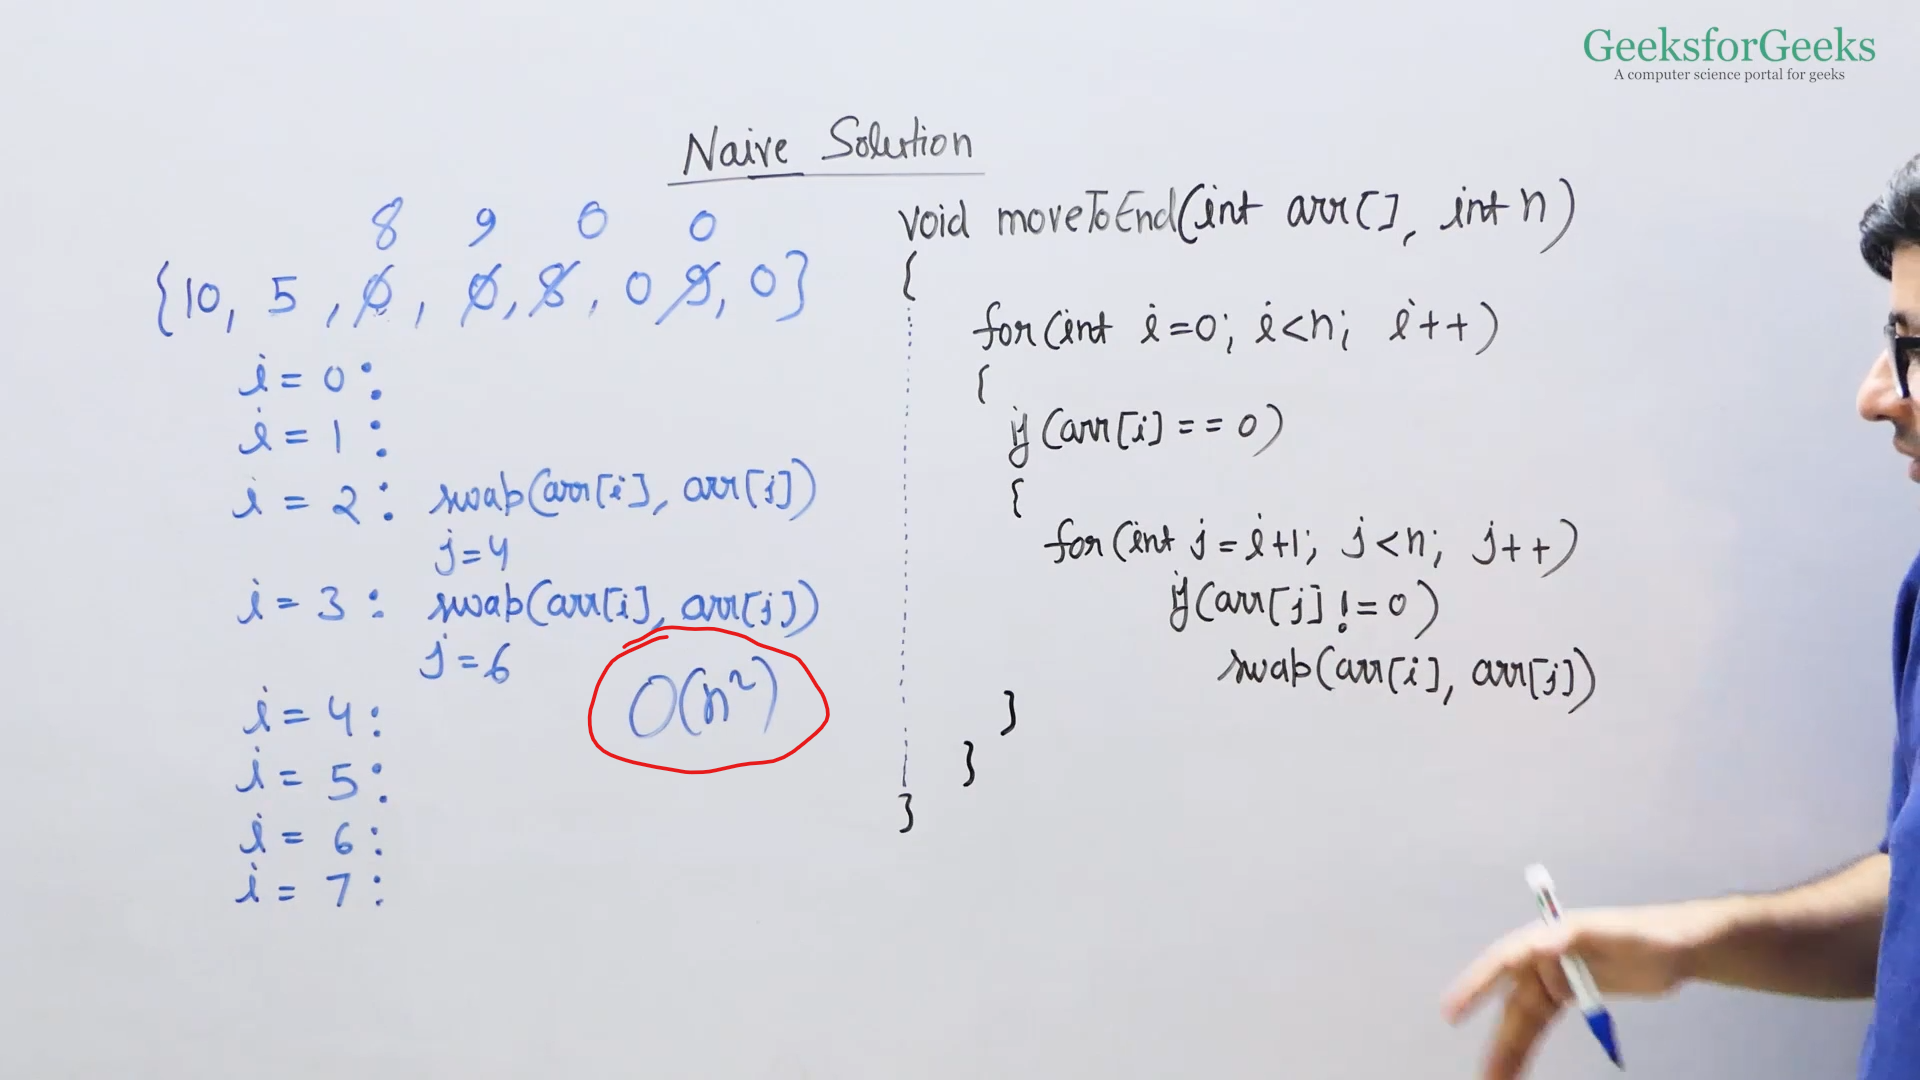 GeeksforGeeks
A computer science portal for geeks
Naive Solution
8 9 0 0
{10, 5, 0, 0, 8, 0 9, 0}
i = 0 :
i = 1 :
i = 2 : swap(arr[i], arr[j])
j = 4
i = 3 : swap(arr[i], arr[j])
j = 6
O(n²)
i = 4 :
i = 5 :
i = 6 :
i = 7 :
void moveToEnd(int arr[], int n)
{
for(int i=0; i<n; i++)
{
if(arr[i] == 0)
{
for(int j=i+1; j<n; j++)
if(arr[j] != 0)
swap(arr[i], arr[j])
}
}
}